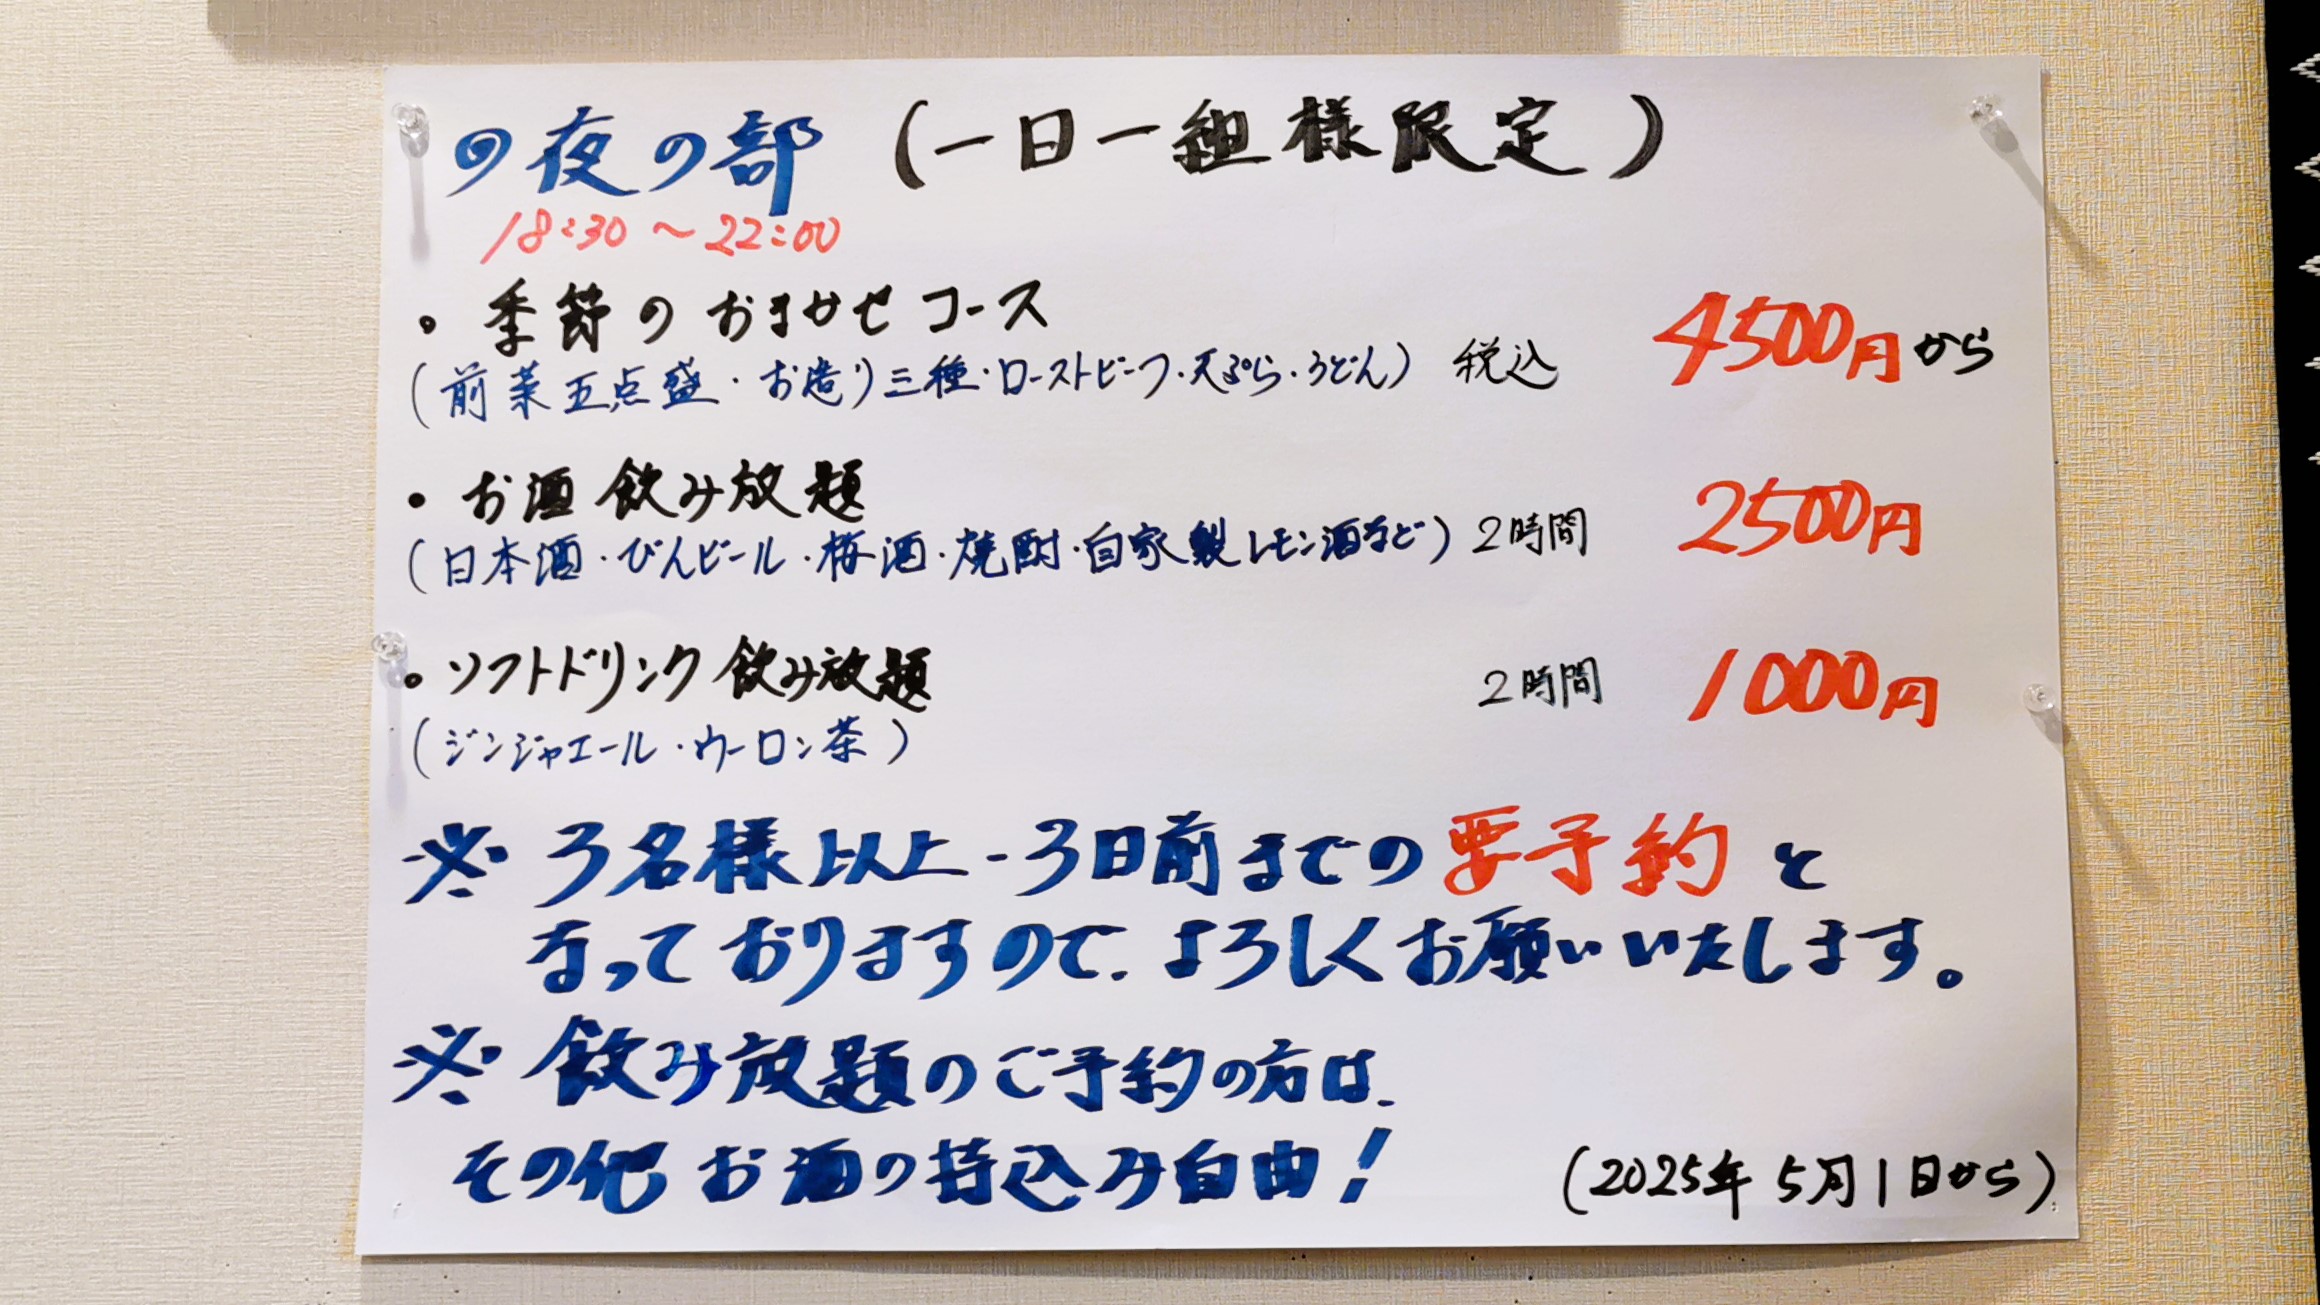 の夜の部 (一日一組様限定)
18:30 〜 22:00
・季節のおまかせコース
(前菜五点盛・お造り三種・ローストビーフ・天ぷら・うどん) 税込 4500円から
・お酒飲み放題
(日本酒・びんビール・梅酒・焼酎・自家製レモン酒など) 2時間 2500円
・ソフトドリンク飲み放題 2時間 1000円
(ジンジャエール・ウーロン茶)
※ 3名様以上-3日前までの要予約と
なっておりますので、よろしくお願いいたします。
※ 飲み放題のご予約の方は、
その他お酒の持込み自由!
(2025年5月1日から)